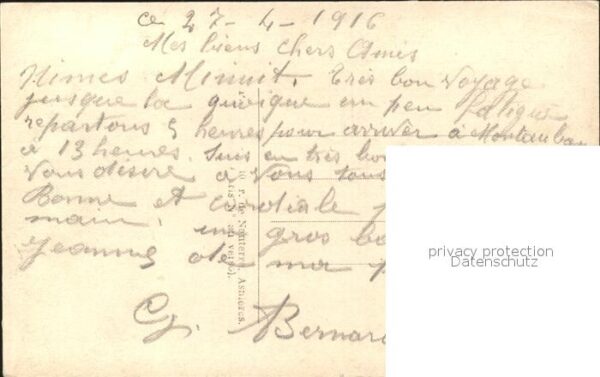 ce 27-4-1916
Mes biens chers Amis
Nimes Minuit. Très bon voyage
jusque la quoique un peu fatigué
repartons 5 heures pour arriver à Montauban
à 13 heures. Suis en très bo
vous désire à vous tous
Bonne et cordiale p
main. un gros ba
Jeanne de ma p
G. Bernar
de Nanterre, Asnières.
privacy protection
Datenschutz